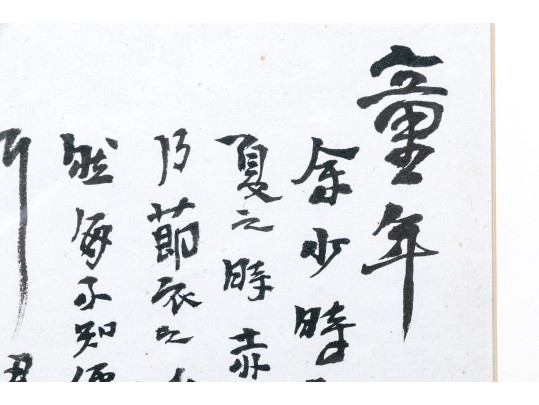 童年
余少時
夏之時赤
乃節衣之
然每不知便